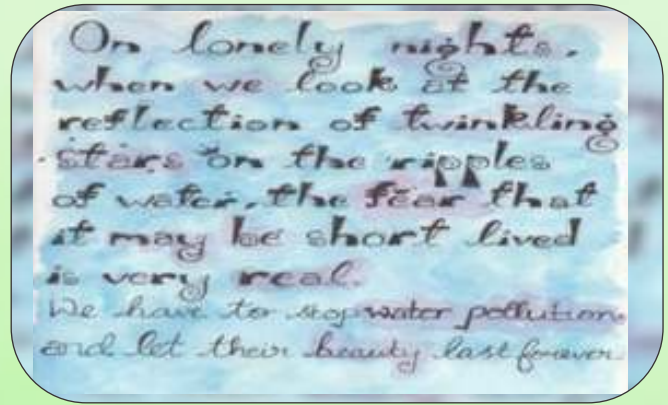 On lonely nights.
when we look at the
reflection of twinkling
stars on the ripples
of water, the fear that
it may be short lived
is very real.
We have to stop water pollution
and let their beauty last forever